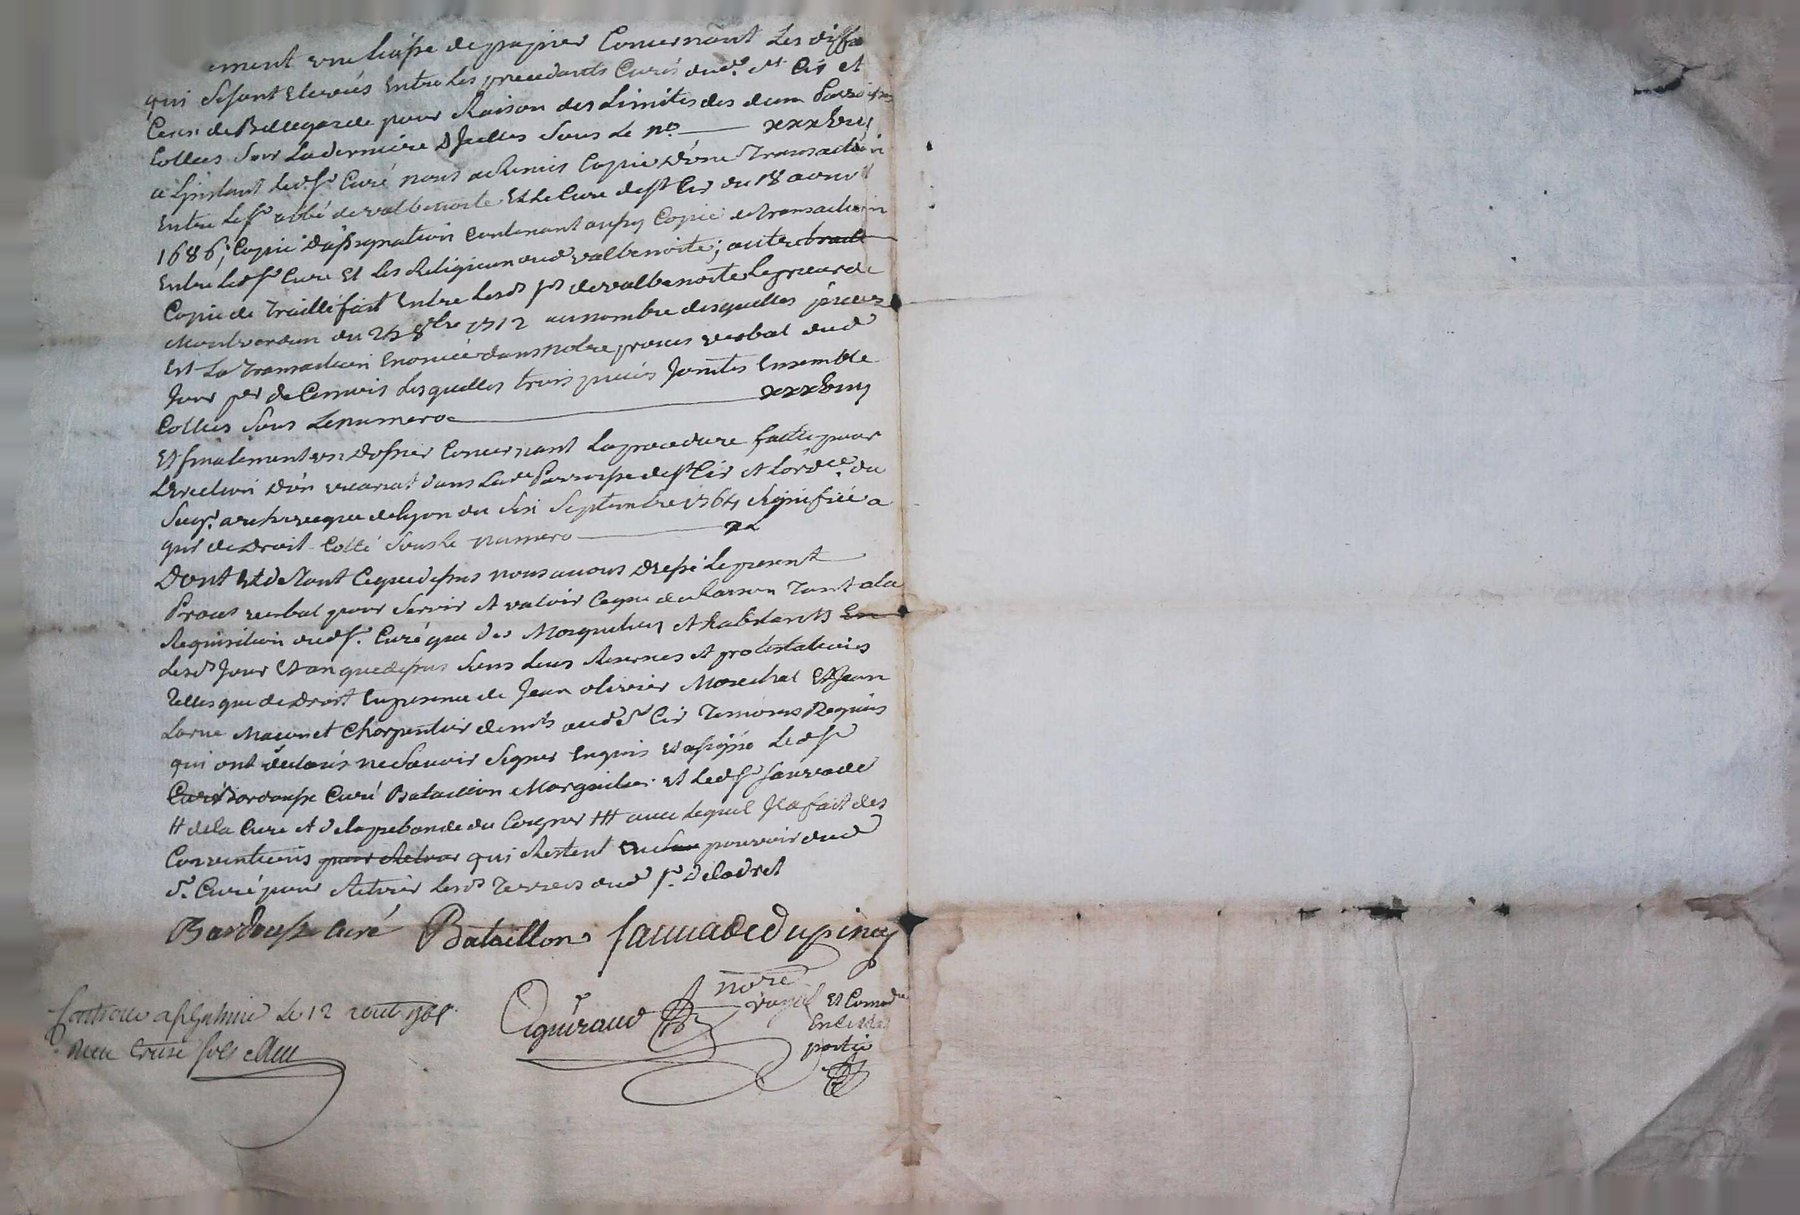 ement une liasse de papier Concernant Les diffe
qui se sont Elevés Entre Les precedants Curés dud. St Cir et
Ceux de Bellegarde pour Raison des Limites des deux Parroisses
Cottees sur La derniere d'Jcelles sous Le no. xxxviij
a L'jnstant Led. Sr Curé nous a Remis Copie d'une Transaction
Entre Le Sr abbé de valbenoite Et Le Curé de St Cir du 18 avril
1686; Copie d'assignation Contenant aussy Copie de transaction
Entre Led. Sr Curé Et Les Religieux dud. valbenoite; autre
Copie de Traitté fait Entre Lesd. Srs de valbenoite Le prieur de
Montverdun du 25 8bre 1712 au nombre desquelles pieces
Est La Transaction Enoncée dans notre proces verbal dud.
Jour per de Ce mois Lesquelles trois pieces Jointes Ensemble
Cottées sous Le numero xxxviiij
Et finalement un Dossier Concernant La procedure faitte pour
L'Erection d'un vicariat dans Lad. Parroisse de St Cir et L'ordce. du
Seigr. archeveque de Lyon du six Septembre 1764 signifiée a
qui de Droit Cotté sous Le numero XL
Dont Et de Tout Ce que dessus nous avons Dressé Le present
Proces verbal pour servir et valoir Ce que de Raison Tant a La
Requisition dud. Sr. Curé que des Marguilliers et habitants
Lesd. Jour Et an que dessus sous Leurs Reserves et protestations
Telles que de Droit En presence de Jean olivier Marechal Et Jean
Larue Maçon et Charpentier demts aud. St Cir Temoins Requis
qui ont declarés ne Scavoir signer Enquis Led. Sr
Curé Bardousse Curé Bataillon Marguillier et Led. Sr sauvade
# de La Cure et de La prebande du Cognet ### avec Lequel Jl a fait des
Conventions pour Retirer qui Restent pouvoir dud.
Sr. Curé pour Retirer Lesd. Terriers dud. Sr. Deladret
Bardousse Curé Bataillon sauvade Dupinay
Guiraud nore royal Et Comre
En Cette
partie
Controllé a St Galmier Le 12 aout 1765
Reçu treize sols